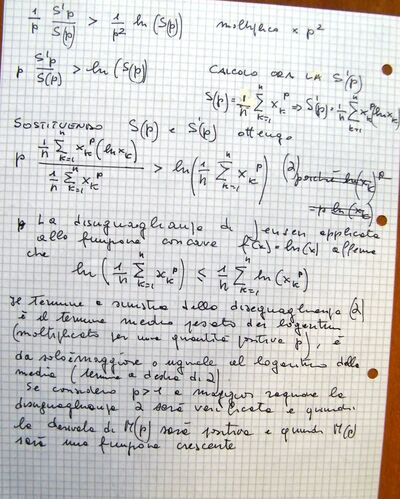 1/p S'p/S(p) > 1/p² ln (S(p)) moltiplico x p²
p S'p/S(p) > ln (S(p)) CALCOLO ORA LA S'(p)
S(p) = 1/n Σ_{k=1}^{n} x_k^p ⇒ S'(p) = 1/n Σ_{k=1}^{n} x_k^p ln x_k
SOSTITUENDO S(p) e S'(p) ottengo
p (1/n Σ_{k=1}^{n} x_k^p (ln x_k)) / (1/n Σ_{k=1}^{n} x_k^p) > ln (1/n Σ_{k=1}^{n} x_k^p) (2) perché ln(x_k)^p
= p ln(x_k)
La disuguaglianza di Jensen applicata
alla funzione concava f(x) = ln(x) afferma
che
ln (1/n Σ_{k=1}^{n} x_k^p) ≤ 1/n Σ_{k=1}^{n} ln (x_k^p)
Il termine a sinistra della diseguaglianza (2)
è il termine medio pesato dei logaritmi
(moltiplicato per una quantità positiva p), è
da solo maggiore o uguale al logaritmo della
media (termine a destra di 2)
Se considero p>1 a maggior ragione la
disuguaglianza 2 sarà verificata e quindi
la derivata di M(p) sarà positiva e quindi M(p)
sarà una funzione crescente